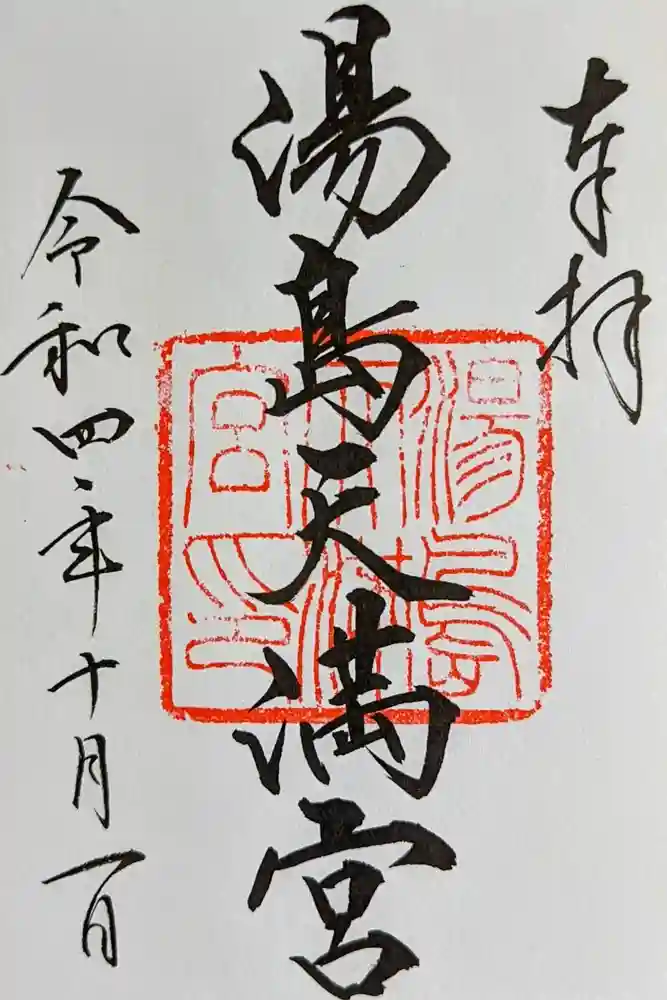 奉拝
湯島天満宮
令和四年十月一日
湯島
天満
宮印